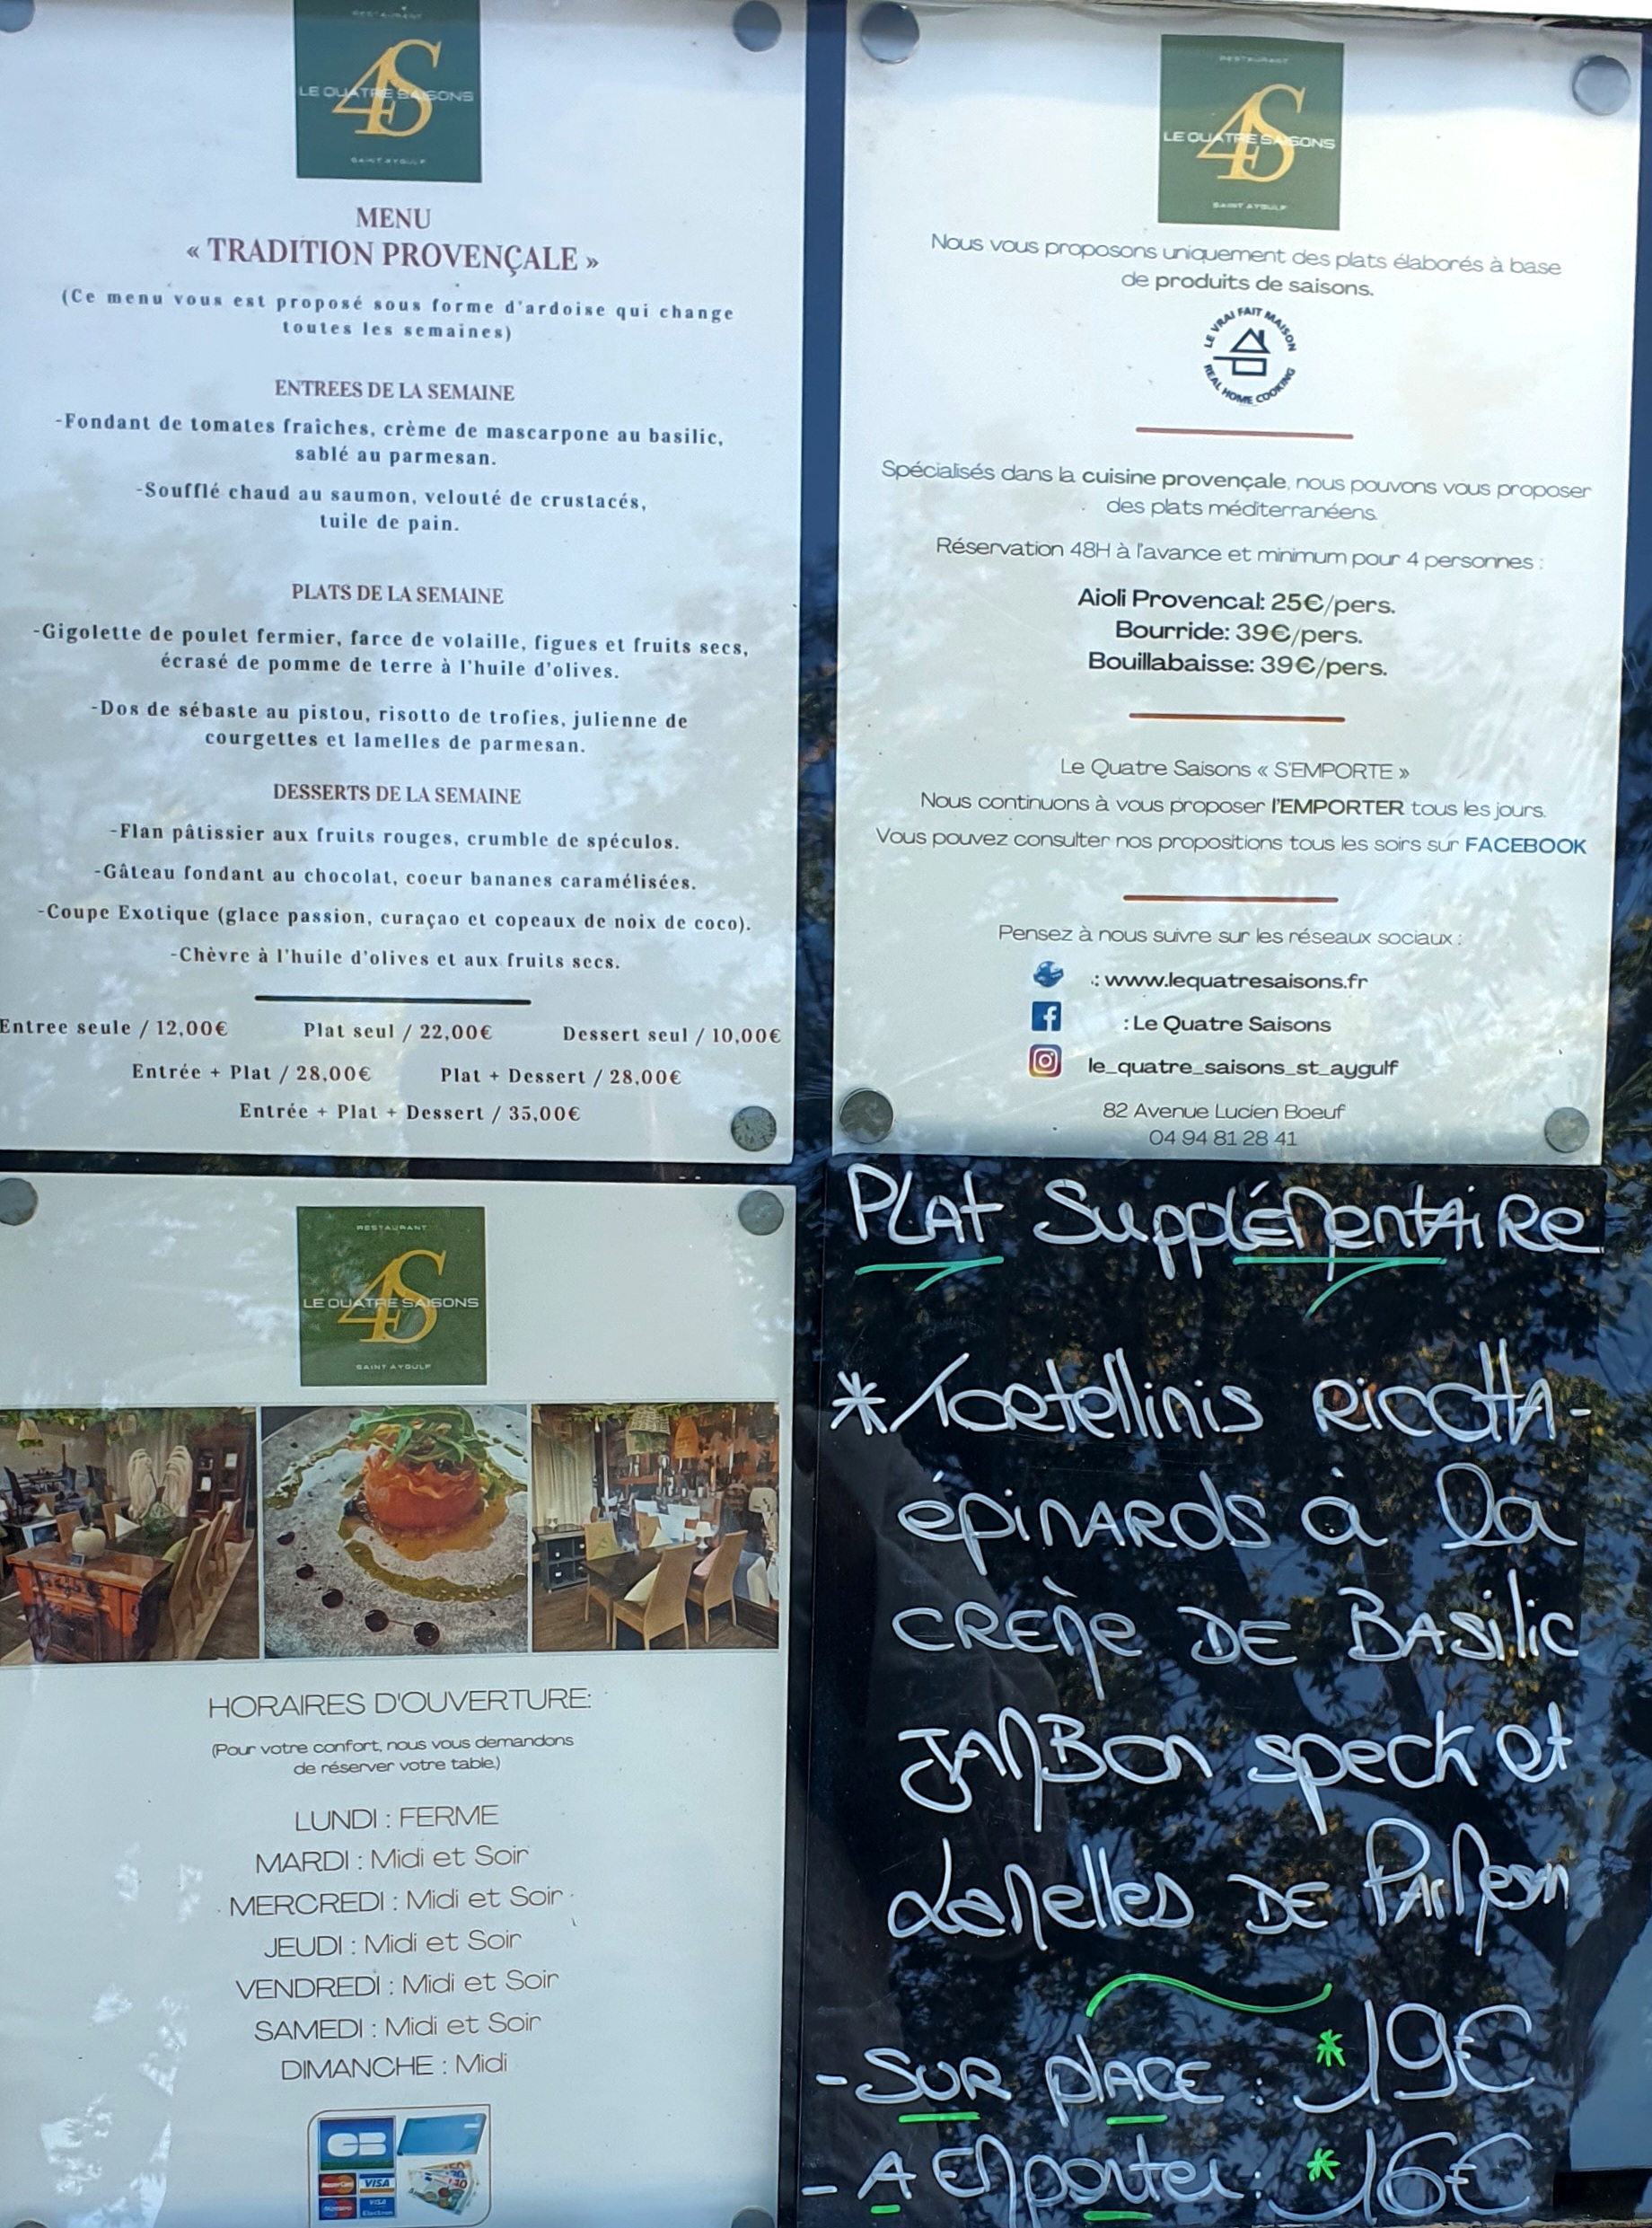 RESTAURANT
4S
LE QUATRE SAISONS
SAINT AYGULF
MENU
« TRADITION PROVENÇALE »
(Ce menu vous est proposé sous forme d'ardoise qui change
toutes les semaines)
ENTREES DE LA SEMAINE
-Fondant de tomates fraîches, crème de mascarpone au basilic,
sablé au parmesan.
-Soufflé chaud au saumon, velouté de crustacés,
tuile de pain.
PLATS DE LA SEMAINE
-Gigolette de poulet fermier, farce de volaille, figues et fruits secs,
écrasé de pomme de terre à l'huile d'olives.
-Dos de sébaste au pistou, risotto de trofies, julienne de
courgettes et lamelles de parmesan.
DESSERTS DE LA SEMAINE
-Flan pâtissier aux fruits rouges, crumble de spéculos.
-Gâteau fondant au chocolat, coeur bananes caramélisées.
-Coupe Exotique (glace passion, curaçao et copeaux de noix de coco).
-Chèvre à l'huile d'olives et aux fruits secs.
Entree seule / 12,00€ Plat seul / 22,00€ Dessert seul / 10,00€
Entrée + Plat / 28,00€ Plat + Dessert / 28,00€
Entrée + Plat + Dessert / 35,00€
RESTAURANT
4S
LE QUATRE SAISONS
SAINT AYGULF
Nous vous proposons uniquement des plats élaborés à base
de produits de saisons.
LE VRAI FAIT MAISON
REAL HOME COOKING
Spécialisés dans la cuisine provençale, nous pouvons vous proposer
des plats méditerranéens.
Réservation 48H à l'avance et minimum pour 4 personnes :
Aioli Provencal: 25€/pers.
Bourride: 39€/pers.
Bouillabaisse: 39€/pers.
Le Quatre Saisons « S'EMPORTE »
Nous continuons à vous proposer l'EMPORTER tous les jours.
Vous pouvez consulter nos propositions tous les soirs sur FACEBOOK
Pensez à nous suivre sur les réseaux sociaux :
: www.lequatresaisons.fr
: Le Quatre Saisons
le_quatre_saisons_st_aygulf
82 Avenue Lucien Boeuf
04 94 81 28 41
RESTAURANT
4S
LE QUATRE SAISONS
SAINT AYGULF
HORAIRES D'OUVERTURE:
(Pour votre confort, nous vous demandons
de réserver votre table.)
LUNDI : FERME
MARDI : Midi et Soir
MERCREDI : Midi et Soir
JEUDI : Midi et Soir
VENDREDI : Midi et Soir
SAMEDI : Midi et Soir
DIMANCHE : Midi
CB
MasterCard VISA
Maestro VISA Electron
PLAT SUPPLÉMENTAIRE
*Tortellinis RICOTTA-
épINARDs à la
CRÈMe DE BAsilic
JAMBon speck et
Lamelles DE PARMesan
- SUR plACE : *19€
- A EMporter : *16€